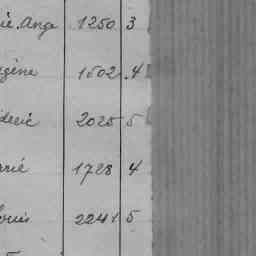 ie. Ange 1250 3
gène 1502 4
deric 2025 5
arié 1728 4
ouis 2241 5